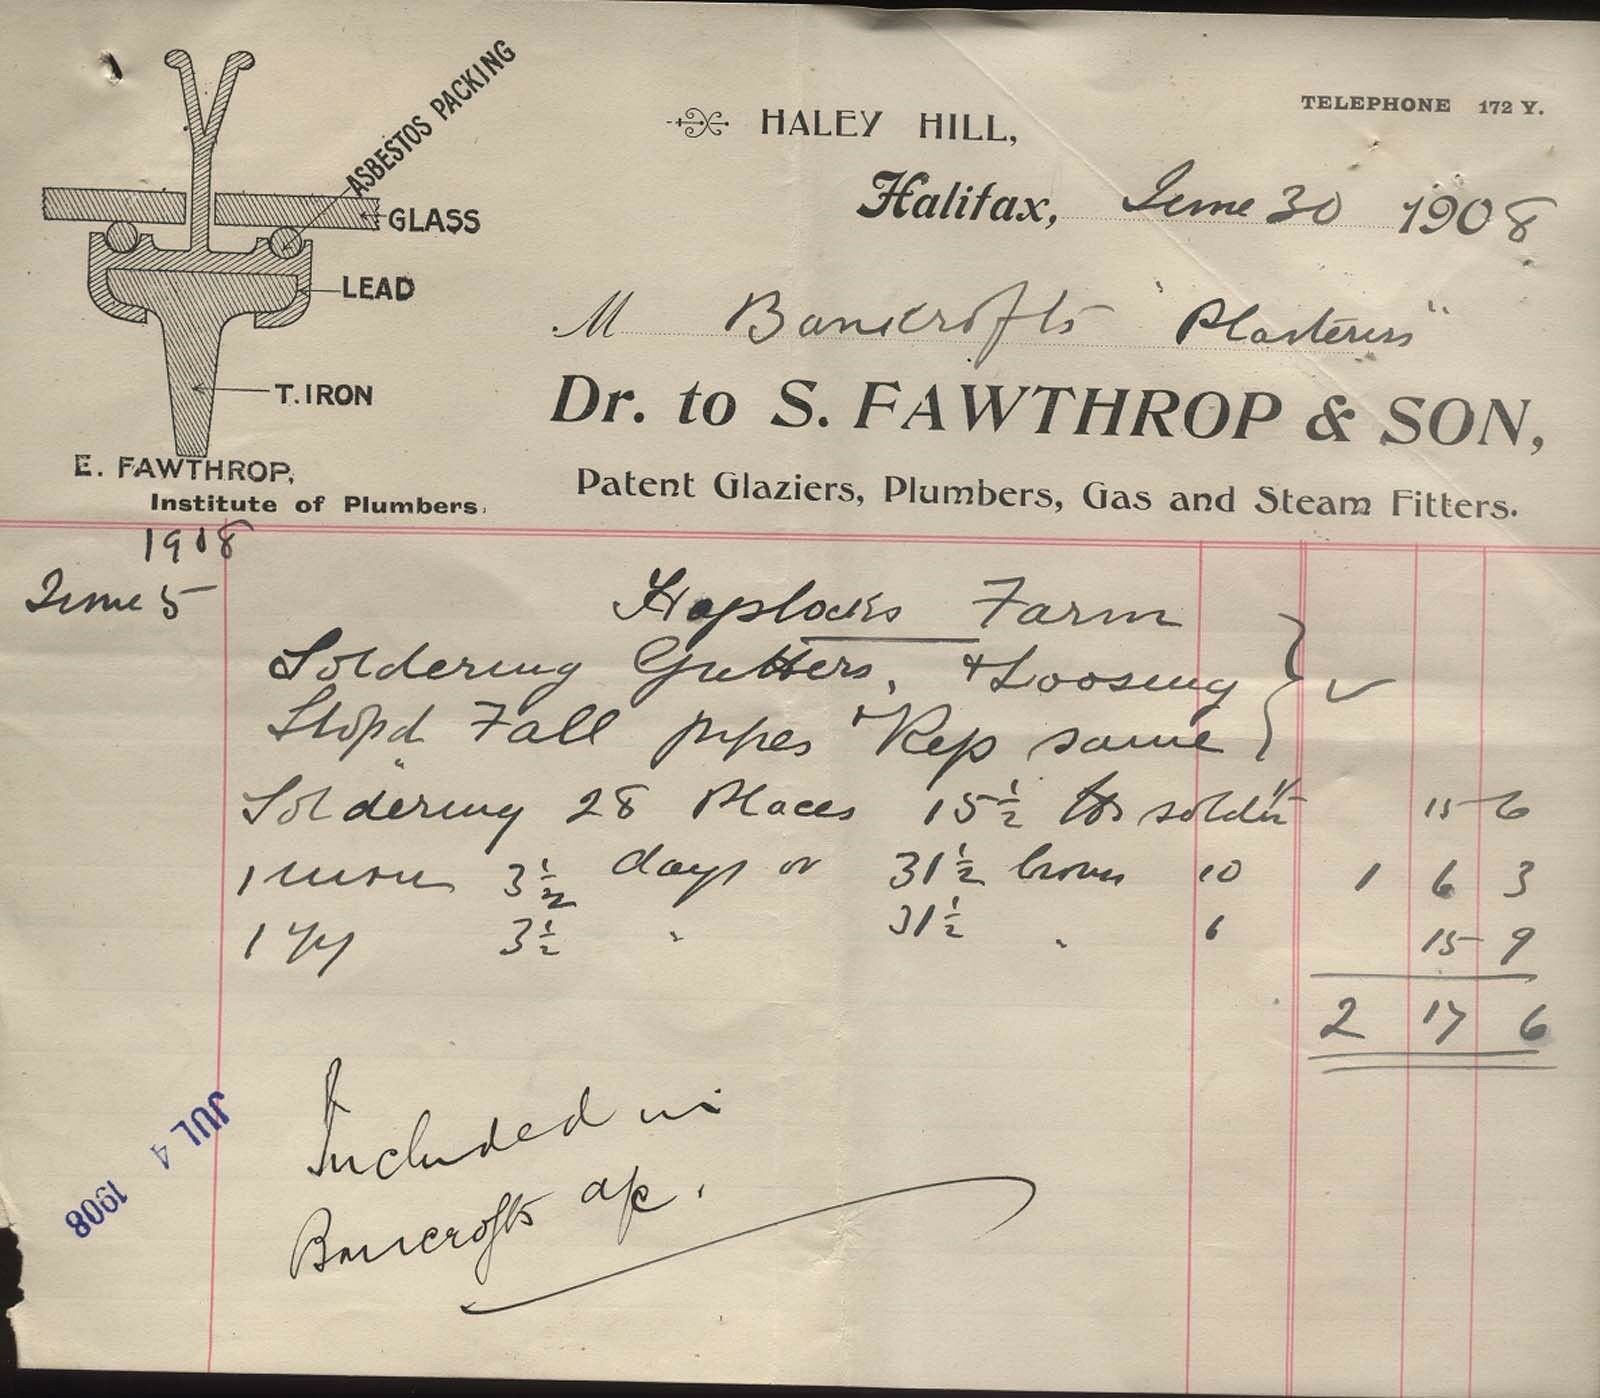 ASBESTOS PACKING
GLASS
LEAD
T. IRON
E. FAWTHROP,
Institute of Plumbers.
TELEPHONE 172 Y.
HALEY HILL,
Halifax, June 30 1908
M Bancrofts "Plasterers"
Dr. to S. FAWTHROP & SON,
Patent Glaziers, Plumbers, Gas and Steam Fitters.
1908
June 5
Haplocks Farm
Soldering Gutters, & Loosing
Stopd Fall pipes & Rep same
Soldering 28 Places 15½ lbs solder 15 6
1 man 3½ days or 31½ hours 10 1 6 3
1 3½ " 31½ " 6 15 9
2 17 6
Included in
Bancrofts a/c.
JUL 4 1908